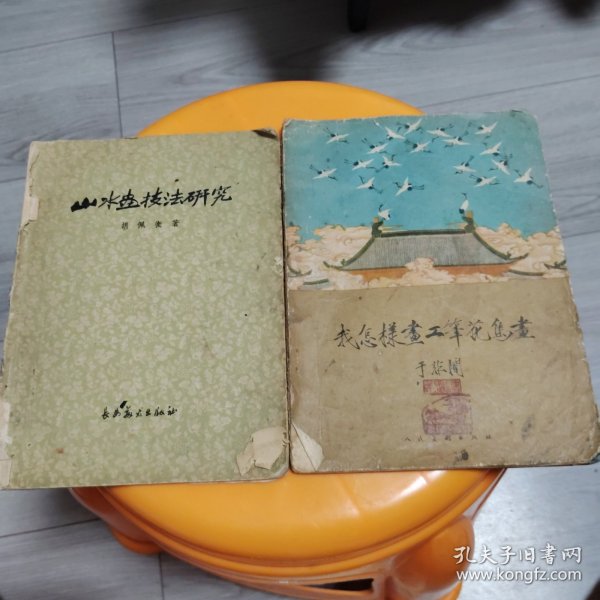 山水画技法研究
胡佩衡著
长安美术出版社
我怎樣畫工筆花鳥畫
于非闇
人民美術出版社
孔夫子旧书网
www.kongfz.com